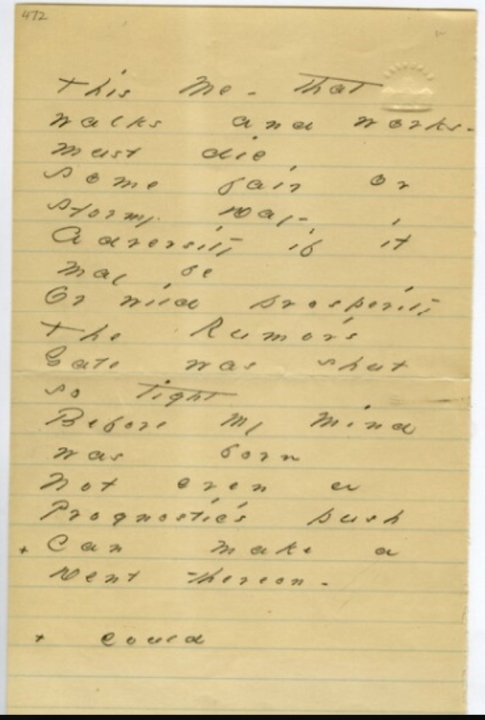 472
This Me - that
walks and works -
must die,
Some fair or
stormy Day -
Adversity if it
may be
Or wild prosperity
The Rumor's
Gate was shut
so tight
Before my mind
was born
Not even a
Prognostic's push
+ Can make a
Dent thereon -
+ could